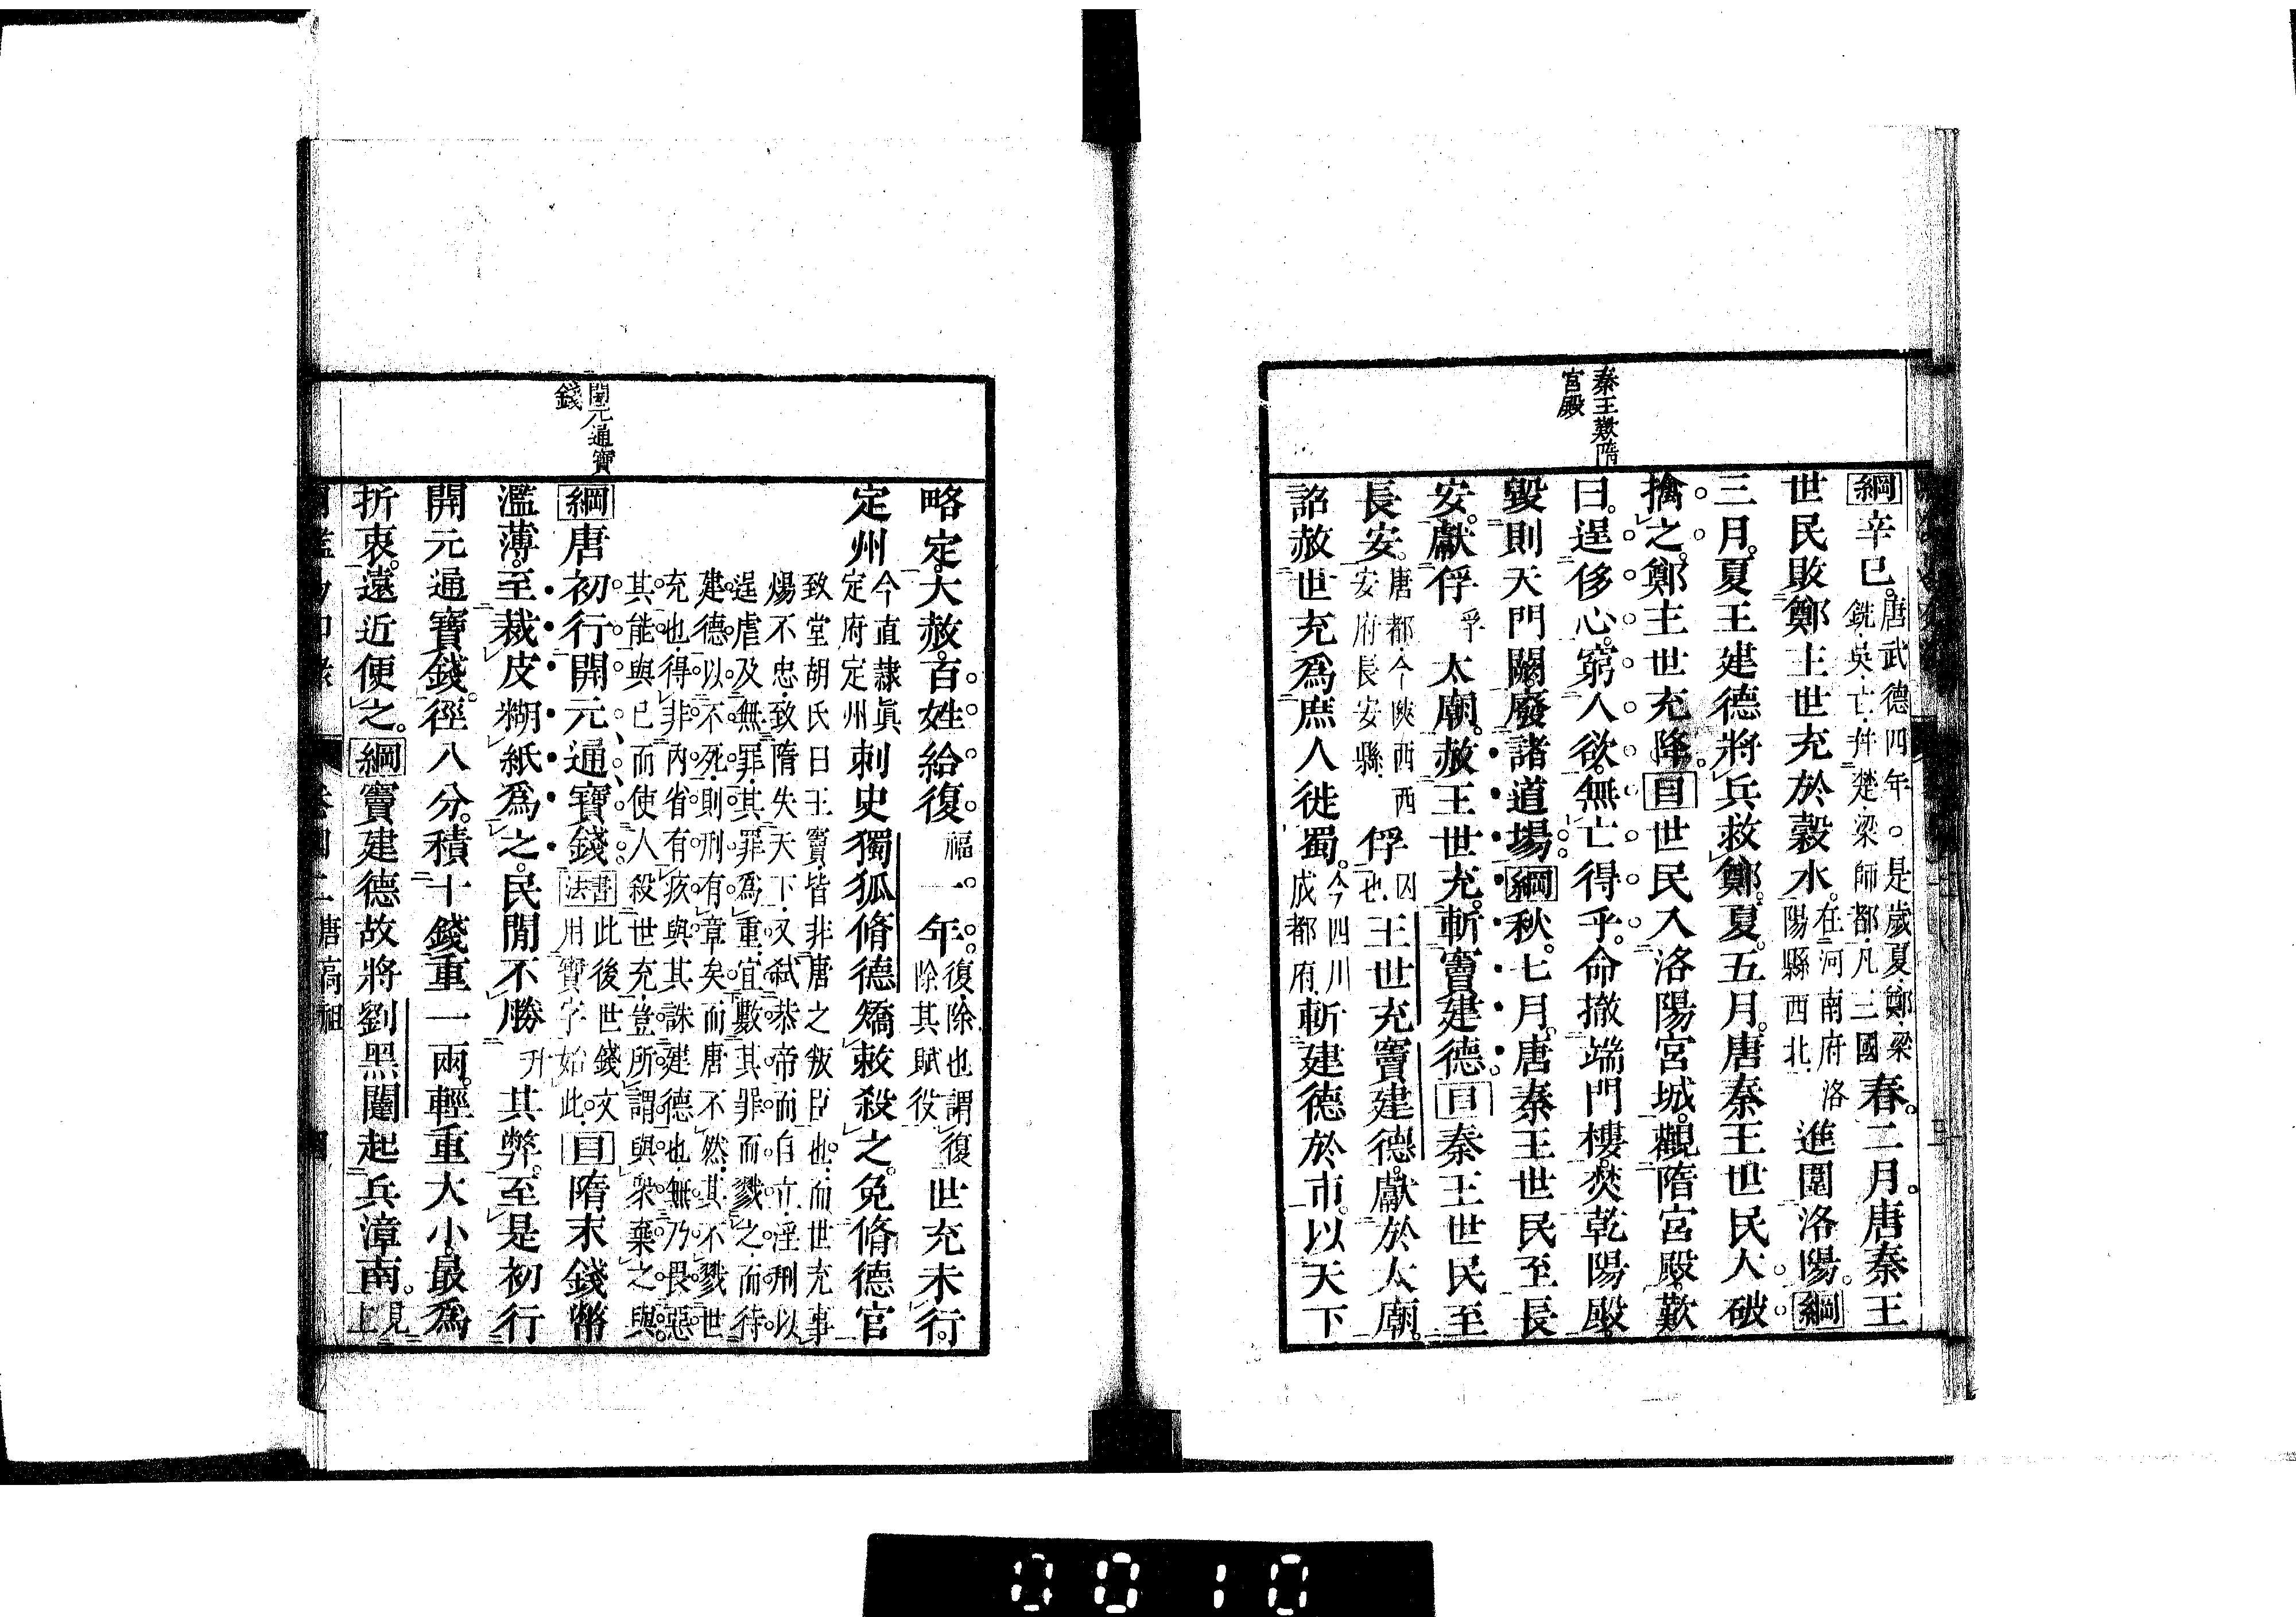 秦王歎隋
宮殿
綱辛巳。唐武德四年。是歲夏鄭梁銑吳亡幷楚梁師都凡三國春。二月。唐秦王
世民敗鄭王世充於穀水。在河南府洛陽縣西北進圍洛陽。綱
三月。夏王建德將兵救鄭。夏。五月。唐秦王世民大破
擒之。鄭主世充降。目世民入洛陽宮城。觀隋宮殿。歎
曰。逞侈心。窮人欲。無亡得乎。命撤端門樓。焚乾陽殿。
毀則天門闕。廢諸道場。綱秋。七月。唐秦王世民至長
安。獻俘孚太廟。赦王世充。斬竇建德。目秦王世民至
長安。唐都今陝西西安府長安縣俘囚也王世充竇建德。獻於太廟。
詔赦世充爲庶人徙蜀。今四川成都府斬建德於市。以天下
開元通寶
錢
略定。大赦。百姓給復福一年。復除也謂復除其賦役世充未行。
定州今直隸眞定府定州刺史獨狐脩德矯敕殺之。免脩德官
致堂胡氏曰王竇皆非唐之叛臣也而世充事
煬不忠致隋失天下又弑恭帝而自立淫刑以
逞虐及無罪其罪爲重宜數其罪而戮之而待
建德以不死則刑有章矣而唐不然其不戮世
充也得非內省有疚與其誅建德也無乃畏惡
其能與已而使人殺世充豈所謂與衆棄之與
綱唐初行開元通寶錢。書法此後世錢文用寶字始此目隋末錢幣
濫薄。至裁皮糊紙爲之。民間不勝升其弊。至是初行
開元通寶錢。徑八分。積十錢重一兩。輕重大小。最爲
折衷。遠近便之。綱竇建德故將劉黑闥起兵漳南。見上
唐高祖
0010